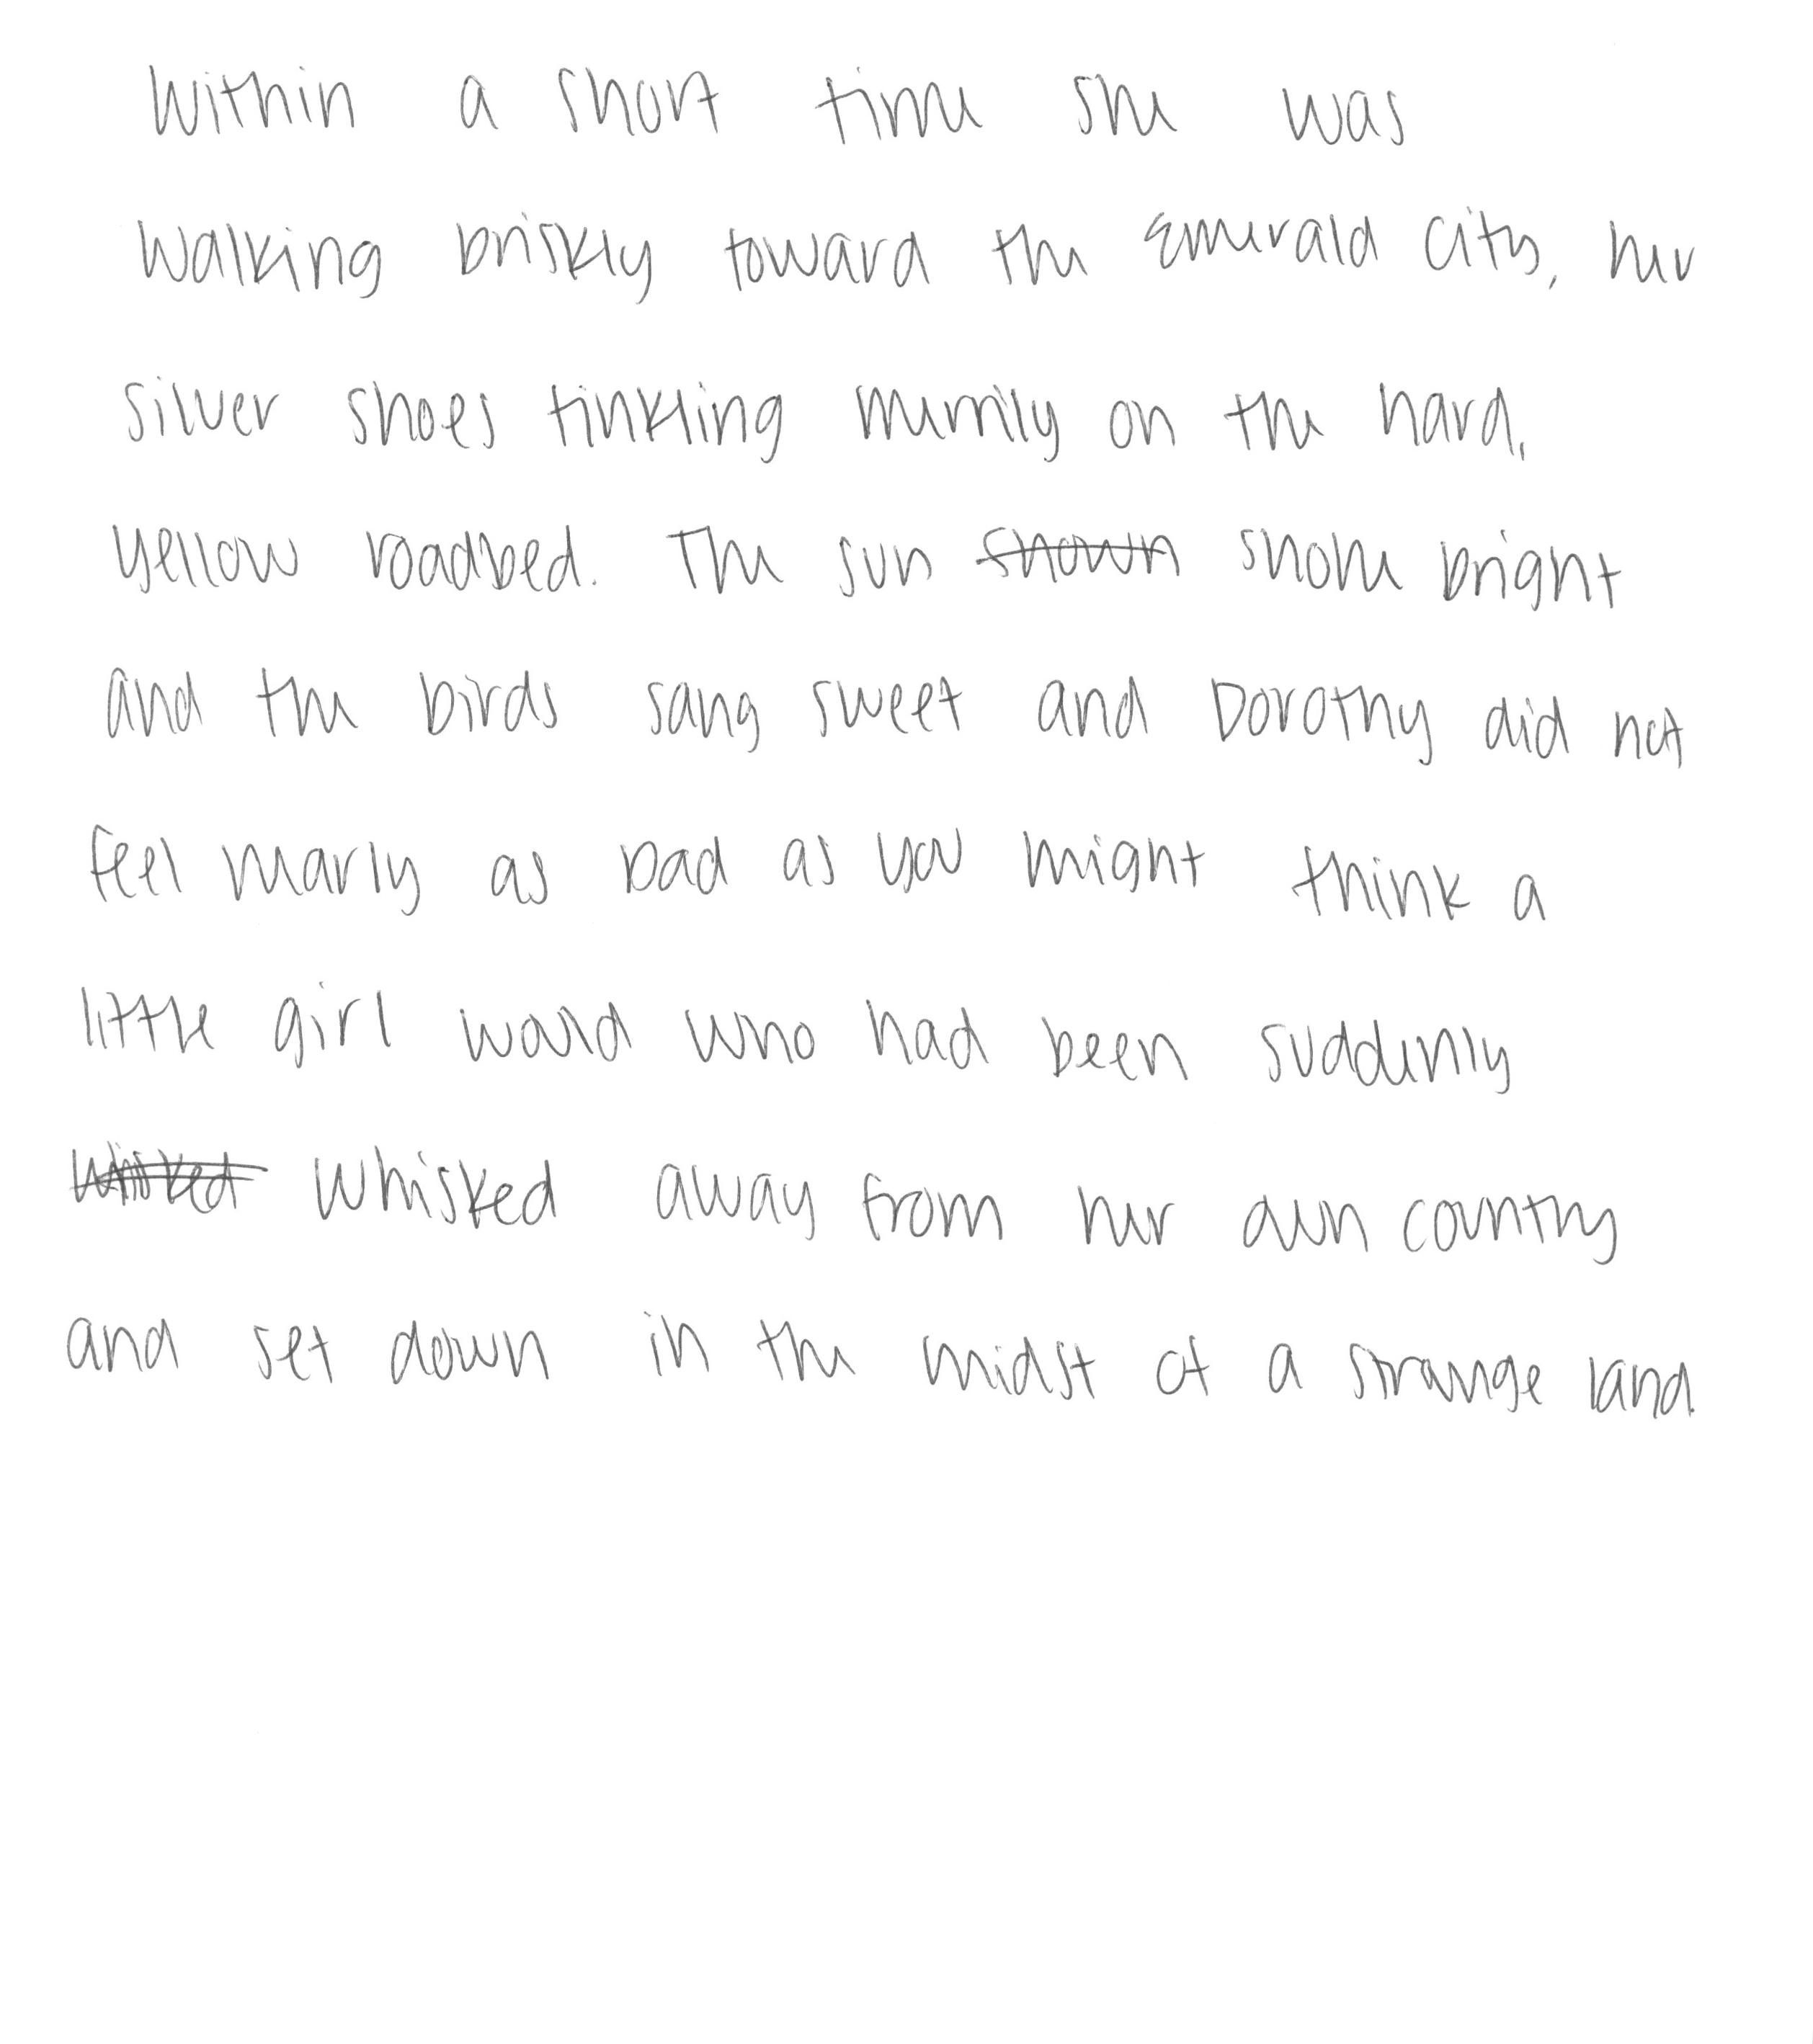 Within a short time she was
walking briskly toward the Emerald City, her
silver shoes tinkling merrily on the hard,
yellow roadbed. The sun shown shone bright
and the birds sang sweet and Dorothy did not
feel nearly as bad as you might think a
little girl would who had been suddenly
whisked away from her own country
and set down in the midst of a strange land.